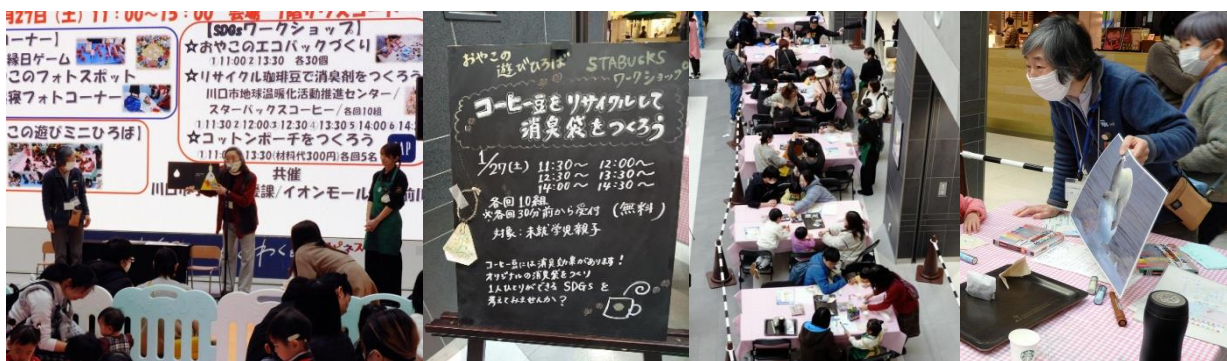 月27日（土）11：00～15：00
コーナー】
縁日ゲーム
このフォトスポット
寝フォトコーナー
この遊びミニひろば】
【SDGsワークショップ】
☆おやこのエコバックづくり
1 11:00 2 13:30 各30個
☆リサイクル珈琲豆で消臭剤をつくろう
川口市地球温暖化活動推進センター/
スターバックスコーヒー/各回10組
1 11:30 2 12:00 3 12:30 4 13:30 5 14:00 6 14:
☆コットンポーチをつくろう
13:30(材料代300円)各回5名
AP
共催
川口市
課/イオンモール
前川
おやこの
遊びひろば
STABUCKS
ワークショップ
コーヒー豆をリサイクルして
消臭袋をつくろう
1/27(土) 11:30～ 12:00～
12:30～ 13:30～
14:00～ 14:30～
各回10組
※各回30分前から受付 (無料)
対象：未就学児親子
コーヒー豆には消臭効果があります！
オリジナルの消臭袋をつくり
1人ひとりができる SDGs を
考えてみませんか？